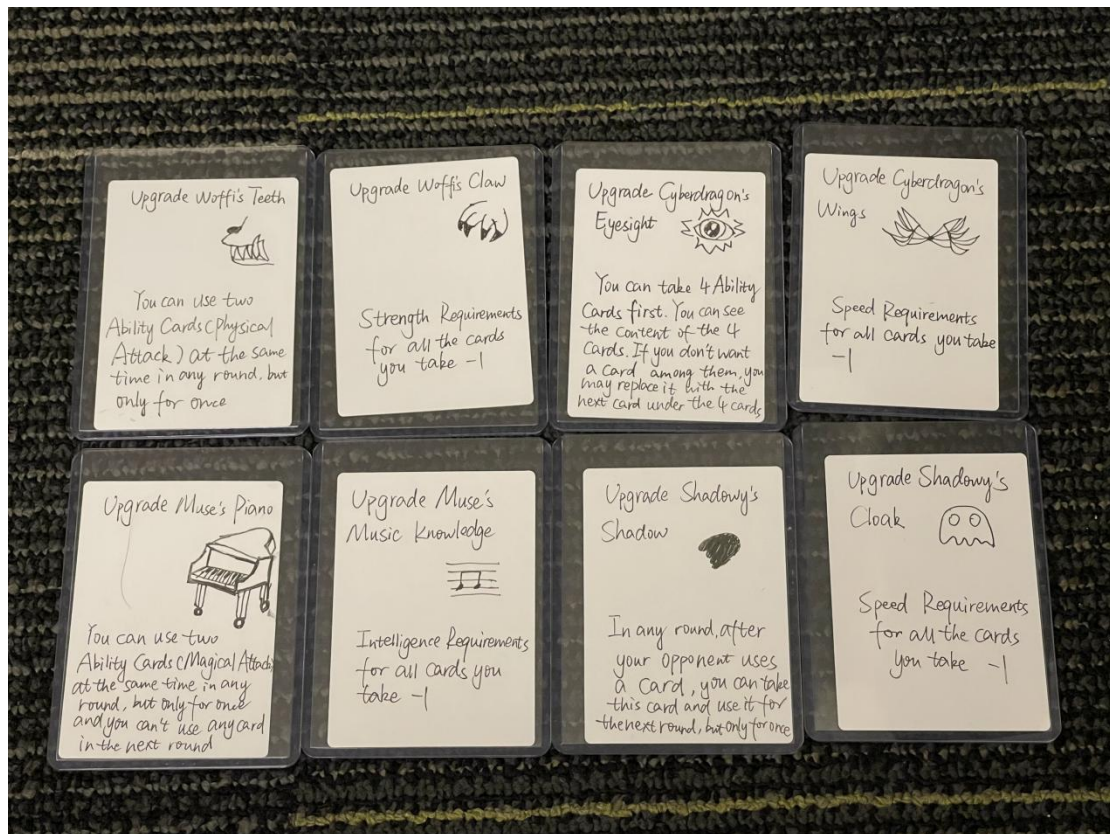 Upgrade Woffi's Teeth
You can use two
Ability Cards (Physical
Attack) at the same
time in any round, but
only for once
Upgrade Woffi's Claw
Strength Requirements
for all the cards
you take -1
Upgrade Cyberdragon's
Eyesight
You can take 4 Ability
Cards first. You can see
the content of the 4
Cards. If you don't want
a Card among them, you
may replace it with the
next card under the 4 cards
Upgrade Cyberdragon's
Wings
Speed Requirements
for all cards you take
-1
Upgrade Muse's Piano
You can use two
Ability Cards (Magical Attack)
at the same time in any
round, but only for once
and you can't use any card
in the next round
Upgrade Muse's
Music Knowledge
Intelligence Requirements
for all cards you
take -1
Upgrade Shadowy's
Shadow
In any round, after
your opponent uses
a Card, you can take
this card and use it for
the next round, but only for once
Upgrade Shadowy's
Cloak
Speed Requirements
for all the cards
you take -1